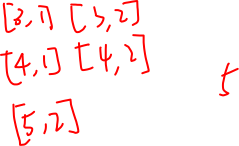 [3,1] [3,2]
[4,1] [4,2]
[5,2]
5